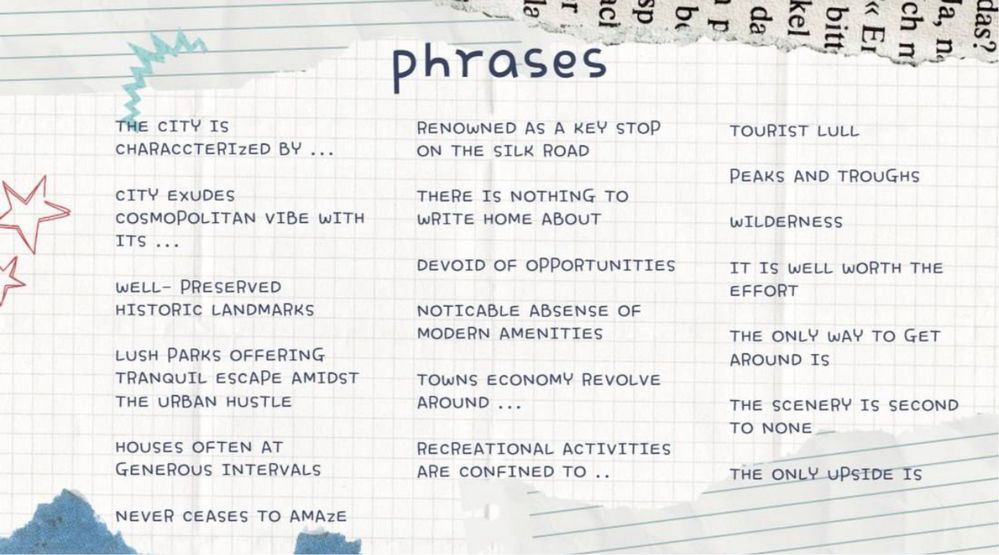 das?
Ja, n
ch n
« Er
bitt
kel
da
n p
be
sp
aci
r i
la
phrases
THE CITY IS
CHARACCTERIZED BY ...
CITY EXUDES
COSMOPOLITAN VIBE WITH
ITS ...
WELL- PRESERVED
HISTORIC LANDMARKS
LUSH PARKS OFFERING
TRANQUIL ESCAPE AMIDST
THE URBAN HUSTLE
HOUSES OFTEN AT
GENEROUS INTERVALS
NEVER CEASES TO AMAZE
RENOWNED AS A KEY STOP
ON THE SILK ROAD
THERE IS NOTHING TO
WRITE HOME ABOUT
DEVOID OF OPPORTUNITIES
NOTICABLE ABSENSE OF
MODERN AMENITIES
TOWNS ECONOMY REVOLVE
AROUND ...
RECREATIONAL ACTIVITIES
ARE CONFINED TO ..
TOURIST LULL
PEAKS AND TROUGHS
WILDERNESS
IT IS WELL WORTH THE
EFFORT
THE ONLY WAY TO GET
AROUND IS
THE SCENERY IS SECOND
TO NONE
THE ONLY UPSIDE IS